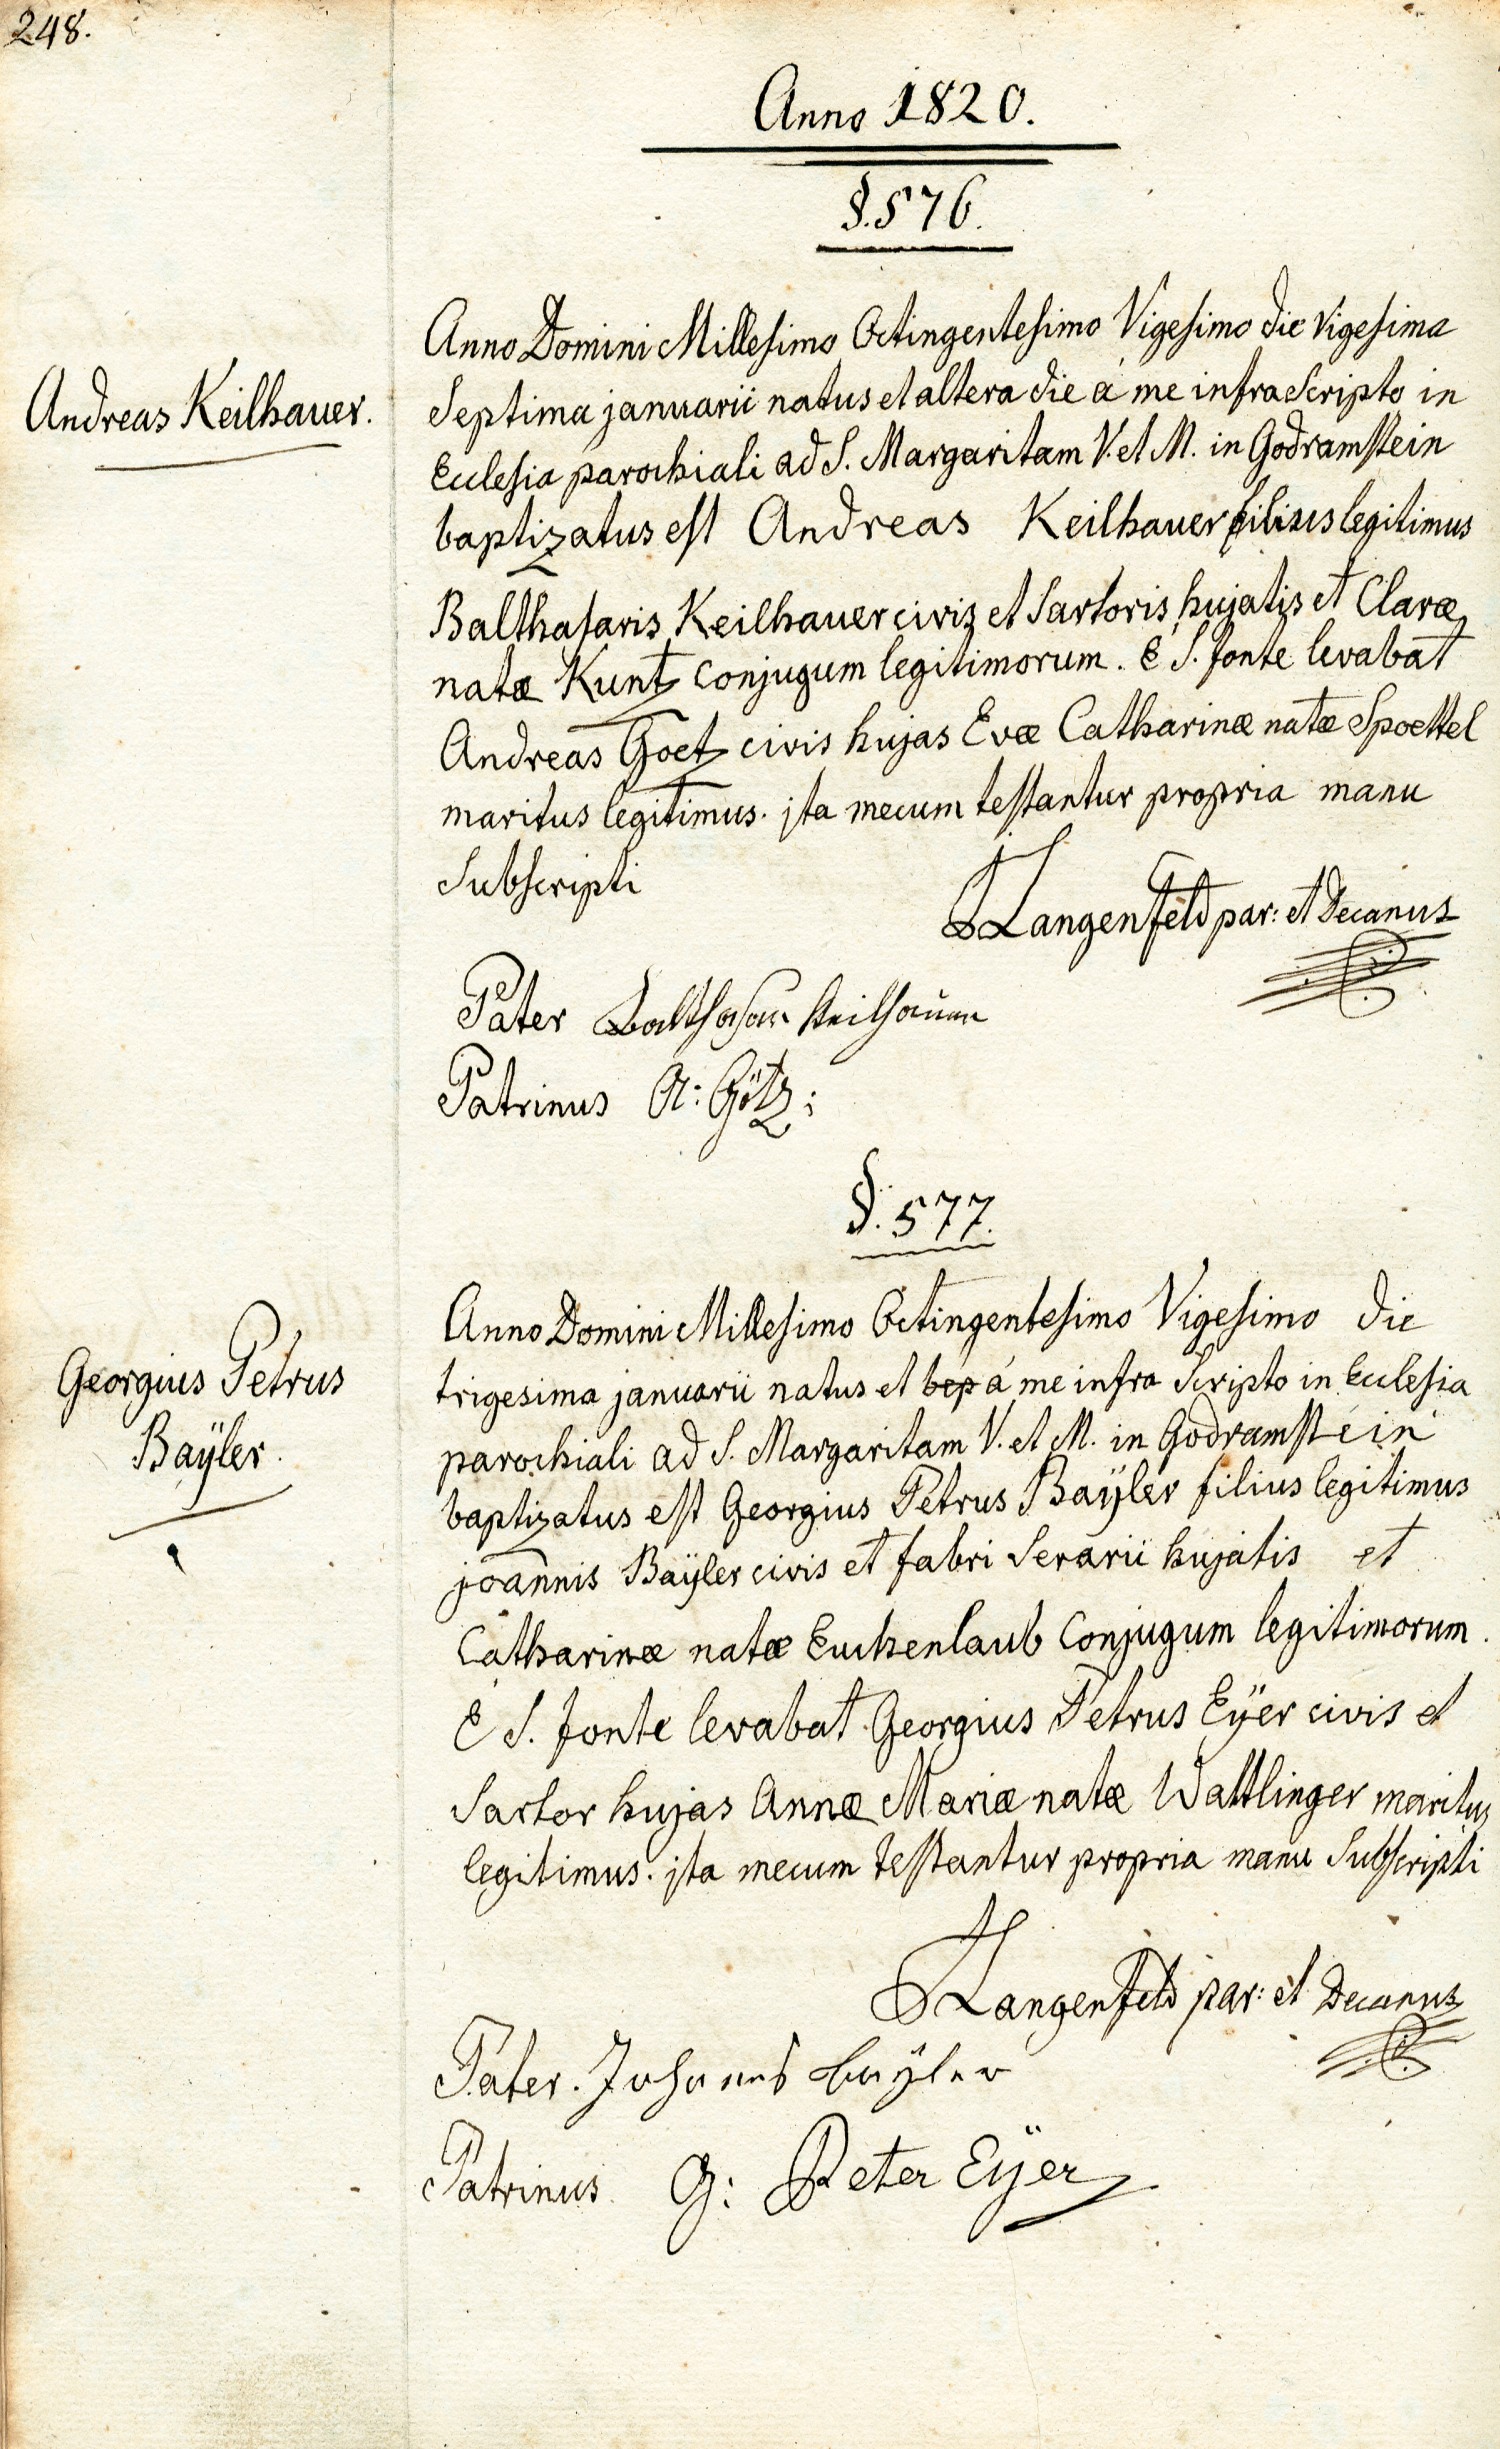 248.
Anno 1820.
§. 576.
Andreas Keilhauer.
Anno Domini Millesimo Octingentesimo Vigesimo die Vigesima
Septima januarii natus et altera die á me infra Scripto in
Ecclesia parochiali ad S. Margaritam V. et M. in Godramstein
baptizatus est Andreas Keilhauer filius legitimus
Balthasaris Keilhauer civis et Sartoris hujatis et Claræ
natæ Kuntz Conjugum legitimorum. é S. fonte levabat
Andreas Goetz civis hujas Evæ Catharinæ natæ Spoettel
maritus legitimus. jta mecum testantur propria manu
Subscripti
Langenfeld par: et Decanus
Pater Balthasar Keilhauer
Patrinus A: Götz;
§. 577.
Georgius Petrus
Baÿler.
Anno Domini Millesimo Octingentesimo Vigesimo die
trigesima januarii natus et bap á me infra Scripto in Ecclesia
parochiali ad S. Margaritam V. et M. in Godramstein
baptizatus est Georgius Petrus Baÿler filius legitimus
joannis Baÿler civis et fabri Serarii hujatis et
Catharinæ natæ Euchenlaub Conjugum legitimorum.
é S. fonte levabat Georgius Petrus Eÿer civis et
Sartor hujas Annæ Mariæ natæ Wattlinger maritus
legitimus. jta mecum testantur propria manu Subscripti
Langenfeld par: et Decanus
Pater. Johanes baÿler
Patrinus G: Peter Eÿer